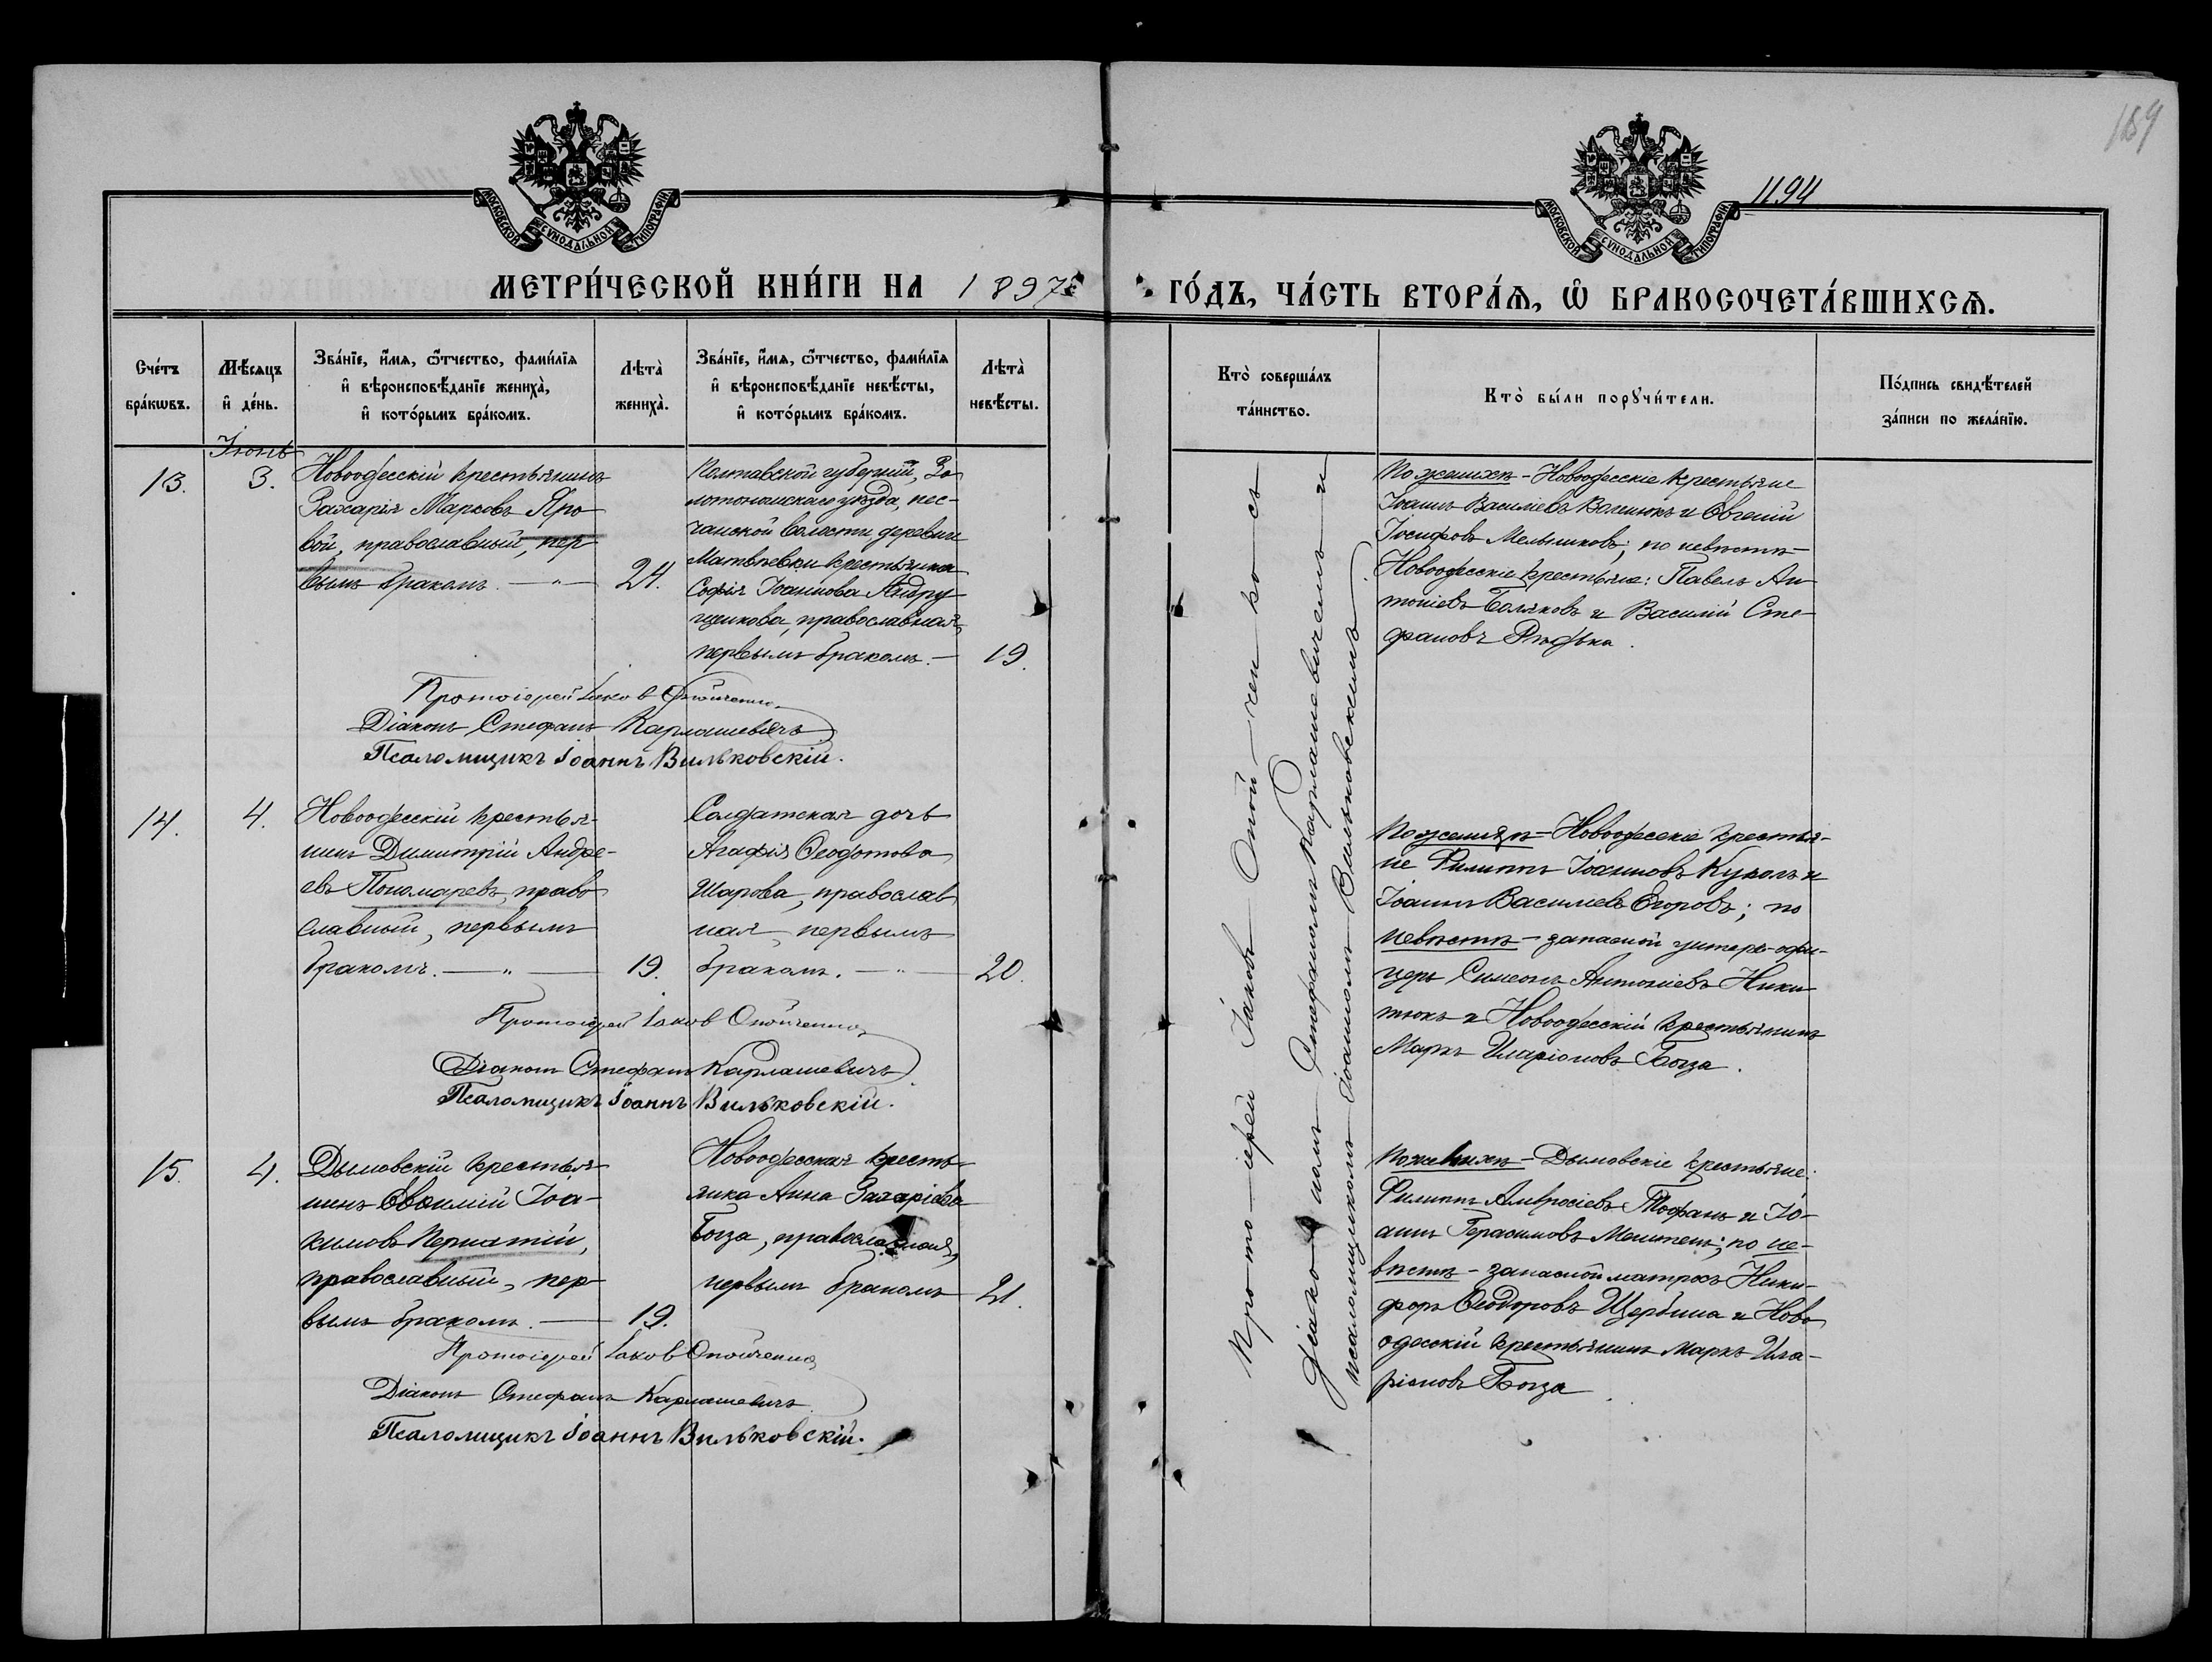 169
1194
МОСКОВСКОЙ СѴНОДАЛЬНОЙ ТИПОГРАФІИ
МОСКОВСКОЙ СѴНОДАЛЬНОЙ ТИПОГРАФІИ
МЕТРИ́ЧЕСКОЙ КНИ́ГИ НА 1897й
ГО́ДЪ, ЧА́СТЬ ВТОРА́Ѧ, Ѡ҆ БРАКОСОЧЕТА́ВШИХСѦ.
Сче́тъ бра́кѡвъ.
Мѣ́сѧцъ и҆ де́нь.
Зва́нїе, и҆́мѧ, ѻ҆́тчество, фами́лїѧ
и҆ вѣроисповѣ́данїе жениха̀,
и҆ кото́рымъ бра́комъ.
Лѣта̀ жениха̀.
Зва́нїе, и҆́мѧ, ѻ҆́тчество, фами́лїѧ
и҆ вѣроисповѣ́данїе невѣ́сты,
и҆ кото́рымъ бра́комъ.
Лѣта̀ невѣ́сты.
Кто̀ соверша́лъ
та́инство.
Кто̀ бы́ли порꙋчи́тели.
По́дпись свидѣ́телей
за́писи по жела́нїю.
Іюнь
13.
3.
Новоодесскій крестьянинъ
Захарія Марковъ Яро-
вой, православный, пер-
вымъ бракомъ. — " —
24.
Полтавской губерніи, Зо-
лотоношскаго уѣзда, пес-
чанской волости, деревни
Матвѣевки крестьянка
Софія Іоаннова Андру-
щенкова, православная,
первымъ бракомъ. —
19.
По женихѣ - Новоодесскіе крестьяне
Іоаннъ Василіевъ и Евгеній
Іосифовъ Мельниковъ; по невѣстѣ -
Новоодесскіе крестьяне: Павелъ Ан-
тоніевъ и Василій Сте-
фановъ Рѣдька.
Протоіерей Іаковъ Опойченко
Діаконъ Стефанъ Карлашевичъ
Псаломщикъ Іоаннъ Вильковскій.
14.
4.
Новоодесскій крестья-
нинъ Димитрій Андре-
евъ Пономаревъ, право-
славный, первымъ
бракомъ. — " —
19.
Солдатская дочь
Агафія Ѳеодотова
Шарова, православ-
ная, первымъ
бракомъ. — " —
20.
По женихѣ - Новоодесскіе крестья-
не Филиппъ Іоанновъ и
Іоаннъ Василіевъ Егоровъ; по
невѣстѣ - запасной унтеръ-офи-
церъ Симеонъ Антоніевъ Ники-
тюкъ и Новоодесскій крестьянинъ
Маркъ Иларіоновъ Боза.
Протоіерей Іаковъ Опойченко
Діаконъ Стефанъ Карлашевичъ
Псаломщикъ Іоаннъ Вильковскій.
15.
4.
Дымовскій крестья-
нинъ Евѳимій Іоа-
кимовъ Пернатій,
православный, пер-
вымъ бракомъ. —
19.
Новоодесская кресть-
янка Анна Захаріева
Боза, православная,
первымъ бракомъ
21.
По женихѣ - Дымовскіе крестьяне:
Филиппъ Амвросіевъ Тофанъ и Іо-
аннъ Герасимовъ; по не-
вѣстѣ - запасной матросъ Ники-
форъ Ѳеодоровъ Щербина и Ново-
одесскій крестьянинъ Маркъ Ила-
ріоновъ Боза.
Протоіерей Іаковъ Опойченко
Діаконъ Стефанъ Карлашевичъ
Псаломщикъ Іоаннъ Вильковскій.
Прото-іерей Іаковъ Опой-чен-ко съ
діако-номъ Стефаномъ Карлашевичемъ и
псаломщикомъ Іоанномъ Вильковскимъ.